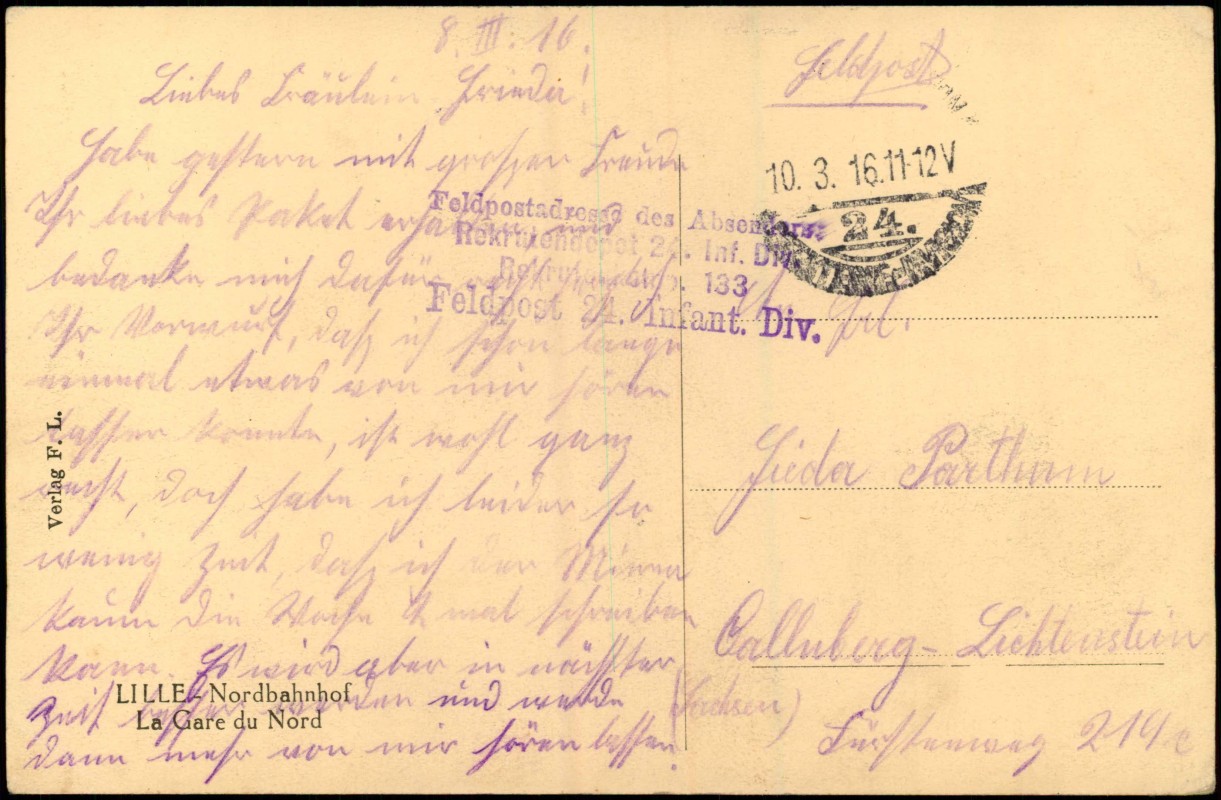 8. III. 16.
Liebes Fräulein Frieda!
Habe gestern mit großer Freude
Ihr liebes Paket erhalten und
bedanke mich dafür recht
Ihr Vorwurf, daß ich schon lange
einmal etwas von mir hören
lassen konnte, ist wohl ganz
recht, doch habe ich leider so
wenig Zeit, daß ich der Minna
kaum die Woche mal schreiben
kann. Es wird aber in nächster
Zeit besser werden und werde
dann mehr von mir hören lassen.
Verlag F. L.
LILLE - Nordbahnhof
La Gare du Nord
Feldpost
10. 3. 16. 11-12 V
24.
Feldpostadresse des Absenders:
Rekrutendepot 24. Inf. Div.
133
Feldpost 24. Infant. Div.
Frl.
Frieda
Callnberg-Lichtenstein
(Sachsen)
Fürstenweg 219 c